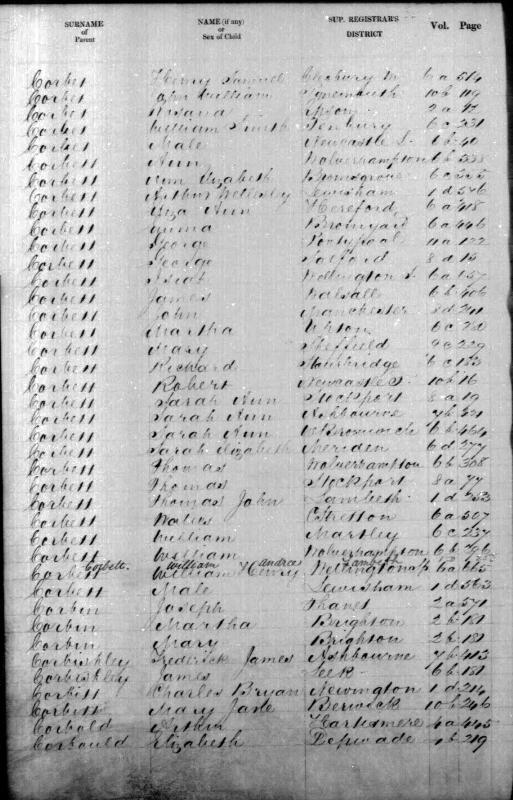 SURNAME
of
Parent
NAME (if any)
or
Sex of Child
SUP. REGISTRAR'S
DISTRICT
Vol. Page
Corbet Henry Samuel Cleobury M 6a 514
Corbet John William Tynemouth 10b 119
Corbet Rosana Epsom 2a
Corbet William Smith Tenbury 6c 231
Corbet Male Newcastle 6b 40
Corbett Ann Wolverhampton 6b
Corbett Ann Elizabeth Bromsgrove 6c
Corbett Arthur Wellesley Lewisham 1d 546
Corbett Eliza Ann Hereford 6a 418
Corbett Emma Bromyard 6a 446
Corbett George Pontypool 11a 122
Corbett George Salford 8d
Corbett Isiah Wellington S 6a 757
Corbett James Walsall 6b 406
Corbett John Manchester 8d 241
Corbett Martha Upton 6c
Corbett Mary Sheffield 9c 229
Corbett Richard Stourbridge 6c 133
Corbett Robert Newcastle 10b 16
Corbett Sarah Ann Stockport 8a 19
Corbett Sarah Ann Ashbourne 7b 321
Corbett Sarah Ann W Bromwich 6b 464
Corbett Sarah Elizabeth Meriden 6d 277
Corbett Thomas Wolverhampton 6b 308
Corbett Thomas Stockport 8a 77
Corbett Thomas John Lambeth 1d 253
Corbett Walter C Stretton 6a 507
Corbett William Martley 6c 237
Corbett William Wolverhampton 6b 296
Corbett William Andrew Lambeth
Corbett William Henry Wellington 6a 665
Corbett Male Lewisham 1d 563
Corbin Joseph Thanet 2a 571
Corbin Martha Brighton 2b 181
Corbin Mary Brighton 2b 181
Corbishley Frederick James Ashbourne 7b 413
Corbishley James Leek 6b 181
Corbitt Charles Bryan Newington 1d 214
Corbitt Mary Jane Berwick 10b 246
Corbold Hartismere 4a 445
Corbould Elizabeth Depwade 4b 219